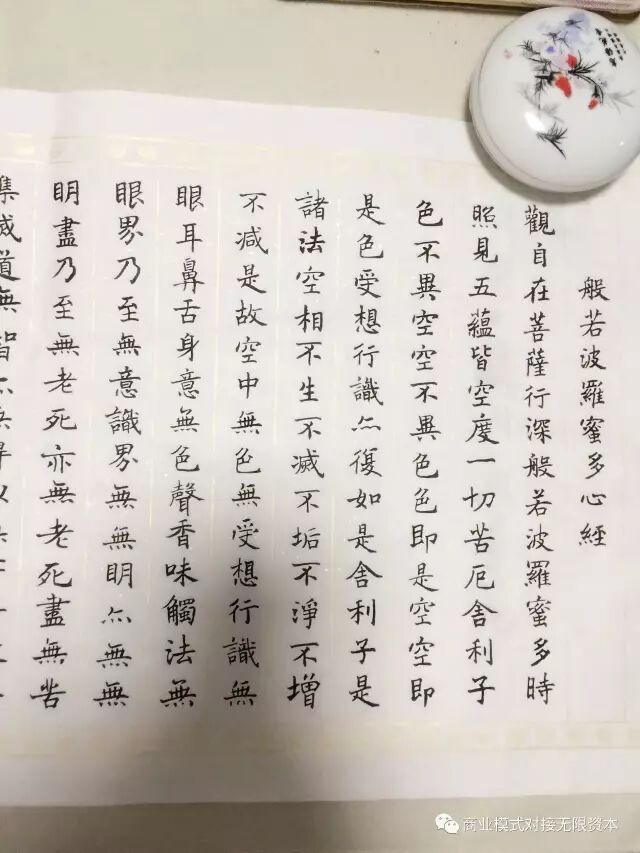 般若波羅蜜多心經
觀自在菩薩行深般若波羅蜜多時
照見五蘊皆空度一切苦厄舍利子
色不異空空不異色色即是空空即
是色受想行識亦復如是舍利子是
諸法空相不生不滅不垢不淨不增
不減是故空中無色無受想行識無
眼耳鼻舌身意無色聲香味觸法無
眼界乃至無意識界無無眀亦無無
眀盡乃至無老死亦無老死盡無苦
集滅道無智亦無得以無
商业模式对接无限资本